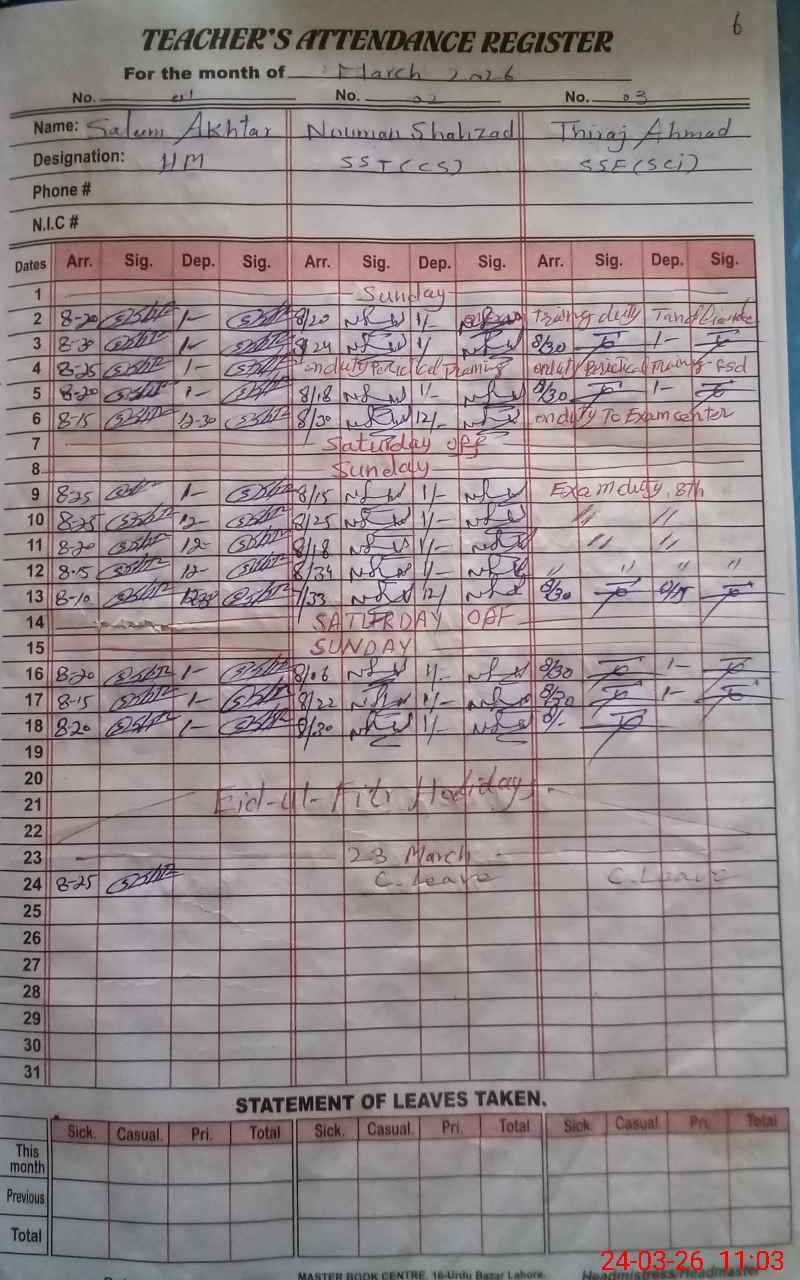 6
TEACHER'S ATTENDANCE REGISTER
For the month of March 2026
No. 01 No. 02 No. 03
Name: Salum Akhtar Nouman Shahzad Ahmad
Designation: HM SST(CS) SSE(Sci)
Phone #
N.I.C #
Dates Arr. Sig. Dep. Sig. Arr. Sig. Dep. Sig. Arr. Sig. Dep. Sig.
1 Sunday
2 8-20 1- 8/20 1/- duty
3 8-30 1- 8/24 1/- 8/30 1-
4 8-25 1- on duty Training on duty Training
5 8-20 1- 8/18 1/- 8/30 1-
6 8-15 12-30 8/30 12/- on duty To Exam center
7 Saturday off
8 Sunday
9 8-25 1- 8/15 1/- Exam duty 8th
10 8-25 12- 8/25 1/- // //
11 8-20 12- 8/18 1/- // //
12 8-15 12- 8/34 1/- " " " "
13 8-10 12-30 12/- 8/30
14 SATURDAY OFF
15 SUNDAY
16 8-20 1- 8/06 1/- 8/30 1-
17 8-15 1- 8/22 1/- 8/30 1-
18 8-20 1- 8/30 1/- 8/-
19
20
21 Eid-ul-Fitr Holidays
22
23 23 March
24 8-25 C. Leave C. Leave
25
26
27
28
29
30
31
STATEMENT OF LEAVES TAKEN.
Sick. Casual. Pri. Total Sick. Casual. Pri. Total Sick. Casual Pri. Total
This month
Previous
Total
MASTER BOOK CENTRE, 16-Urdu Bazar Lahore. Headmistress/Headmaster
24-03-26 11:03